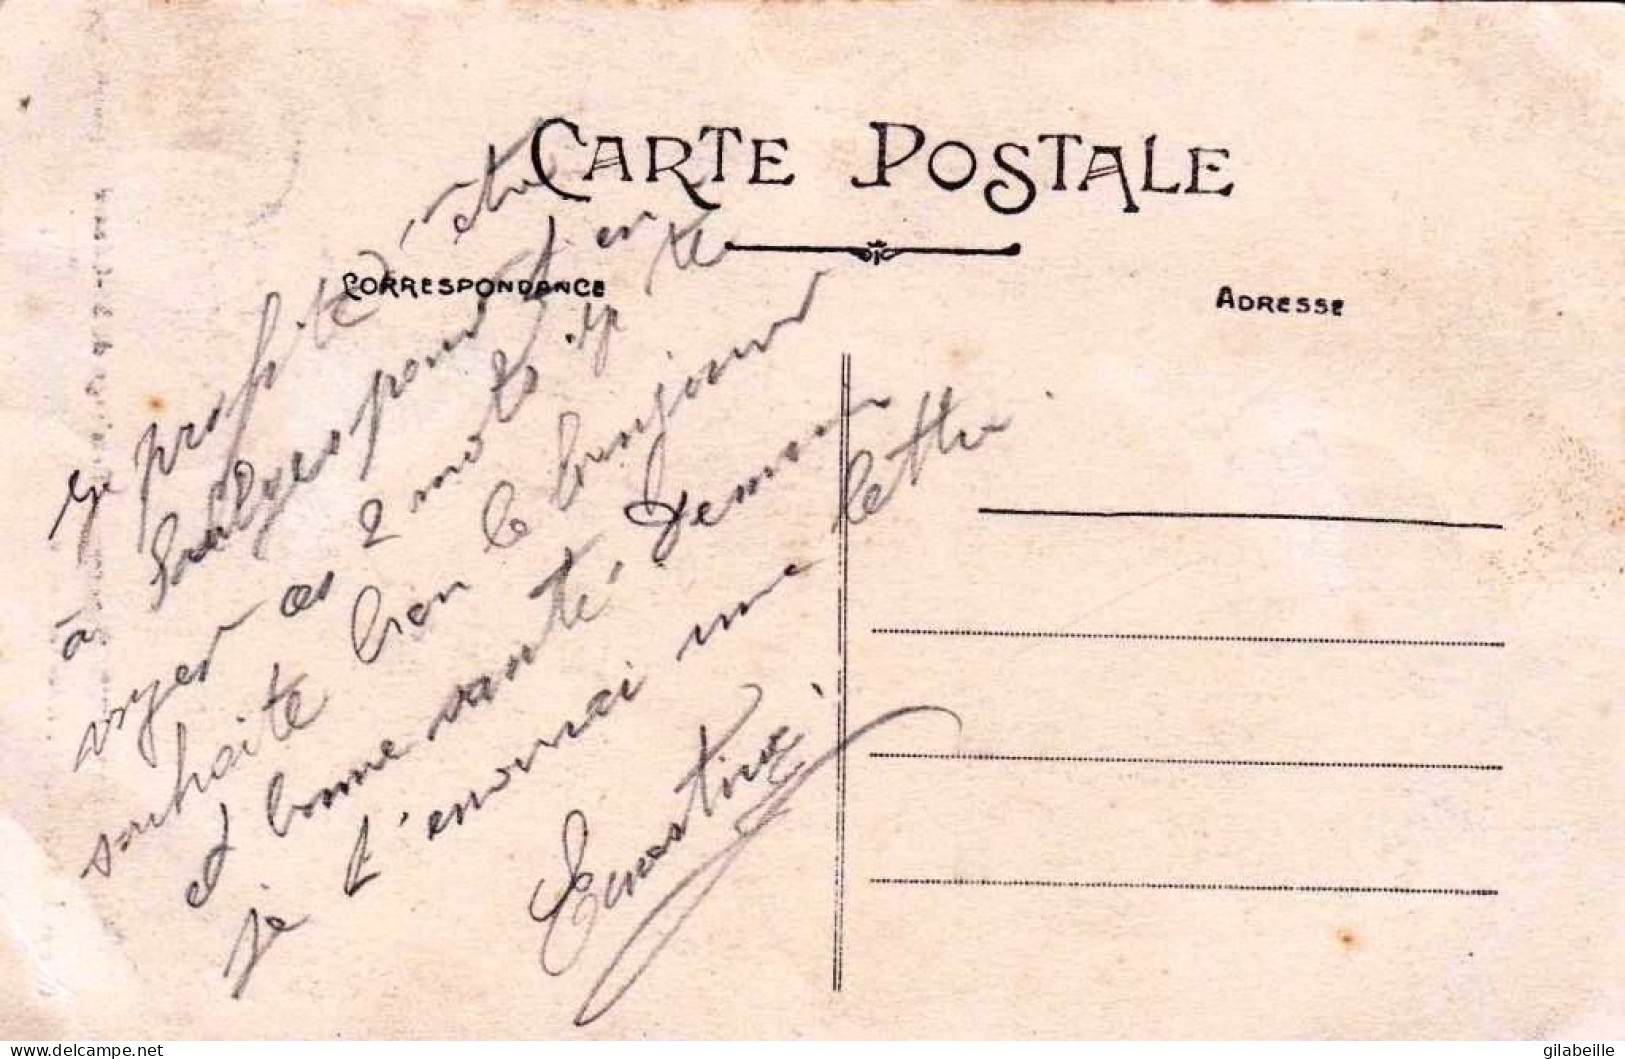 CARTE POSTALE
CORRESPONDANCE
ADRESSE
je profite d'être
à pour t'en
voyer ces 2 mots je te
souhaite bien le bonjour
et bonne santé demain
je t'enverrai une lettre.
Ernestine
delcampe.net
gilabeille